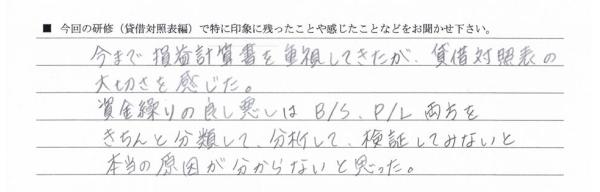 ■ 今回の研修（貸借対照表編）で特に印象に残ったことや感じたことなどをお聞かせ下さい。
今まで損益計算書を重視してきたが、貸借対照表の
大切さを感じた。
資金繰りの良し悪しは B/S、P/L 両方を
きちんと分類して、分析して、検証してみないと
本当の原因が分からないと思った。